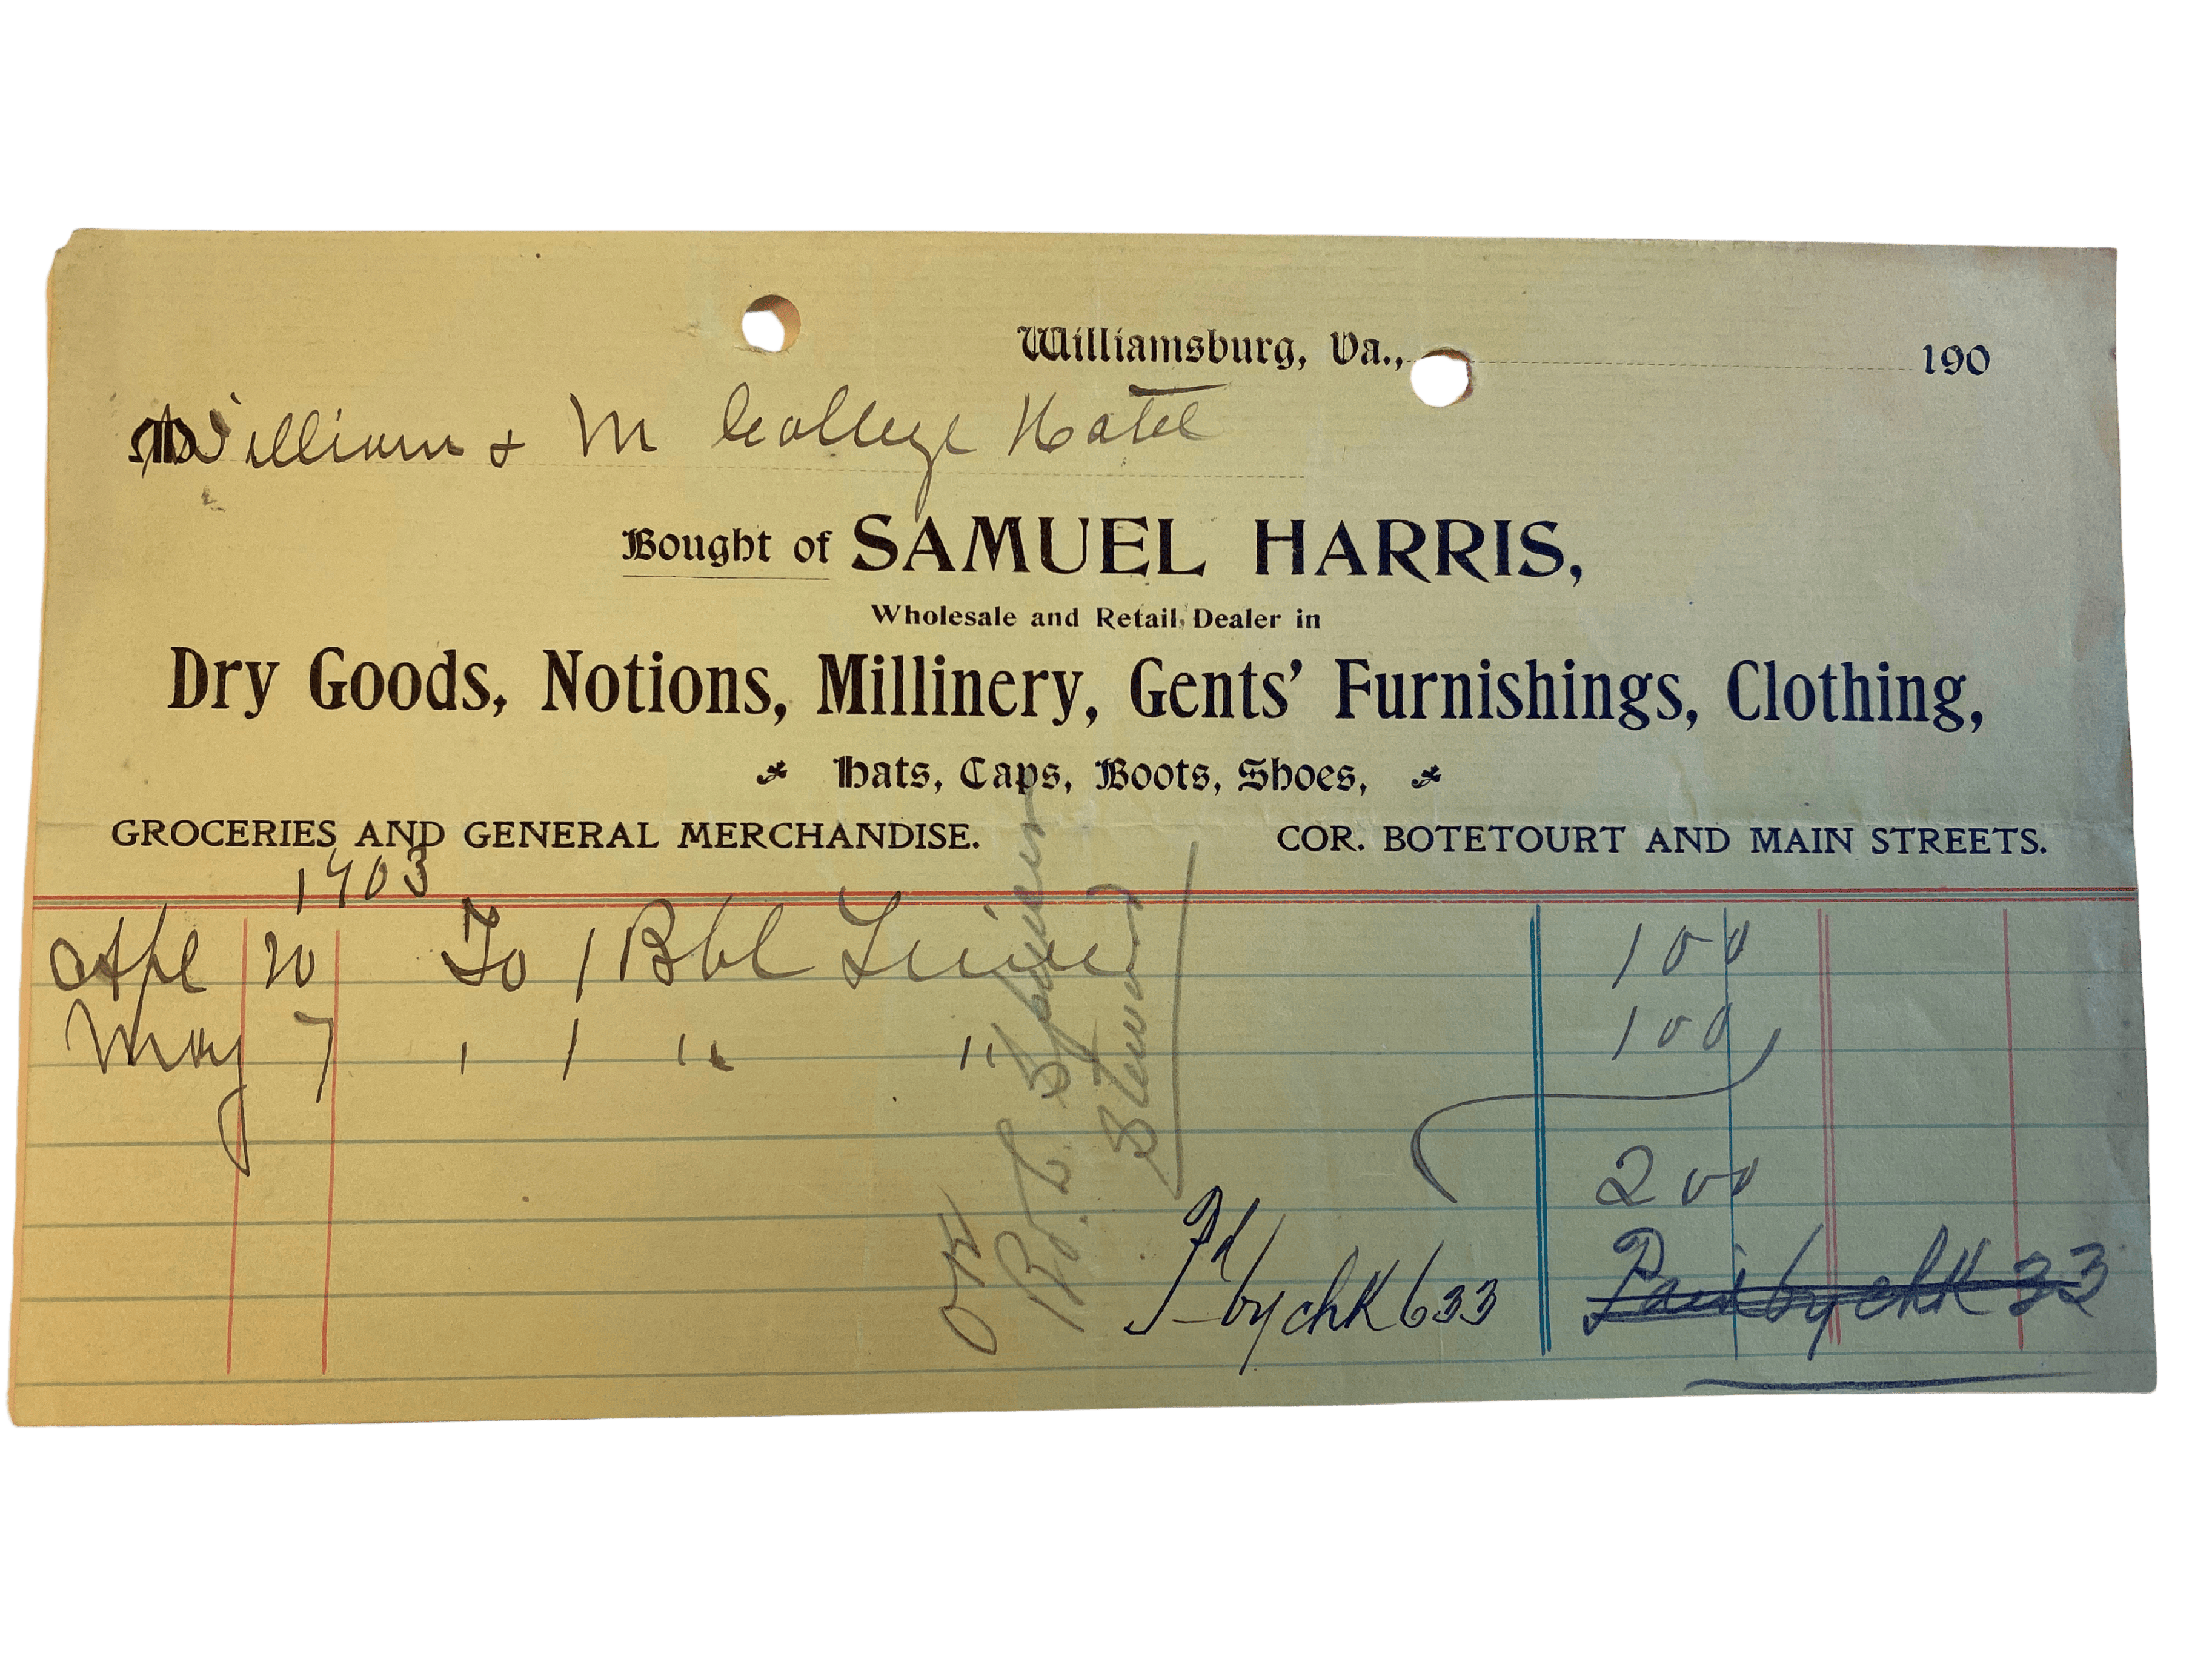 Williamsburg, Va., 190
M William & M College Hotel
Bought of SAMUEL HARRIS,
Wholesale and Retail Dealer in
Dry Goods, Notions, Millinery, Gents' Furnishings, Clothing,
Hats, Caps, Boots, Shoes,
GROCERIES AND GENERAL MERCHANDISE. COR. BOTETOURT AND MAIN STREETS.
1903
Apl 20 To 1 Bbl Lime 1 00
May 7 " 1 " " 1 00
2 00
OK
Steward
Pd by chk 633
Paid by chk 33